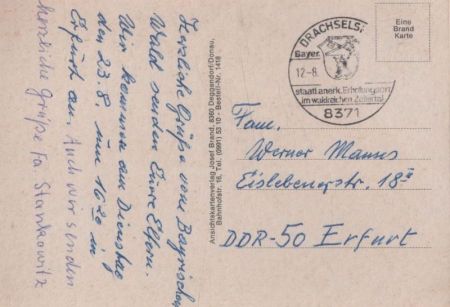 Herzliche Grüße vom Bayrischen
Wald senden Eure Eltern.
Wir kommen am Dienstag
den 23.8. um 16²⁰ in
Erfurt an. Auch wir senden
herzliche Grüße Fa. Stankowitz
Ansichtskartenverlag Josef Brand, 8360 Deggendorf/Donau,
Bahnhofstr. 16, Tel. (0991) 53 10 - Bestell-Nr. 1418
DRACHSELS
Bayer.
12.-8.
staatl. anerk. Erholungsort
im waldreichen Zellertal
8371
Eine
Brand
Karte
Fam.
Werner Manns
Eislebenerstr. 18
DDR-50 Erfurt